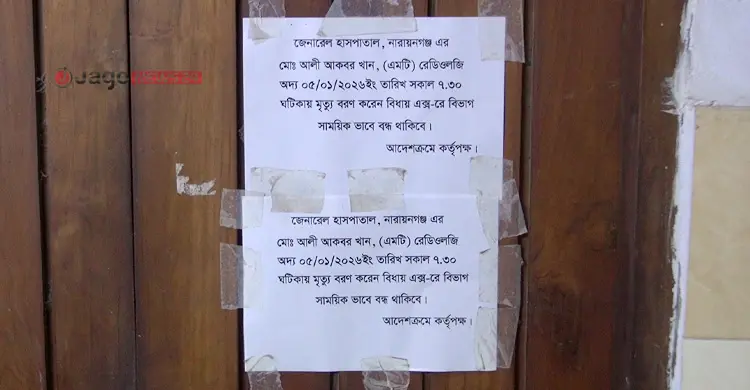 জেনারেল হাসপাতাল, নারায়নগঞ্জ এর
মোঃ আলী আকবর খান, (এমটি) রেডিওলজি
অদ্য ০৫/০১/২০২৬ইং তারিখ সকাল ৭.৩০
ঘটিকায় মৃত্যু বরণ করেন বিধায় এক্স-রে বিভাগ
সাময়িক ভাবে বন্ধ থাকিবে।
আদেশক্রমে কর্তৃপক্ষ।
জেনারেল হাসপাতাল, নারায়নগঞ্জ এর
মোঃ আলী আকবর খান, (এমটি) রেডিওলজি
অদ্য ০৫/০১/২০২৬ইং তারিখ সকাল ৭.৩০
ঘটিকায় মৃত্যু বরণ করেন বিধায় এক্স-রে বিভাগ
সাময়িক ভাবে বন্ধ থাকিবে।
আদেশক্রমে কর্তৃপক্ষ।